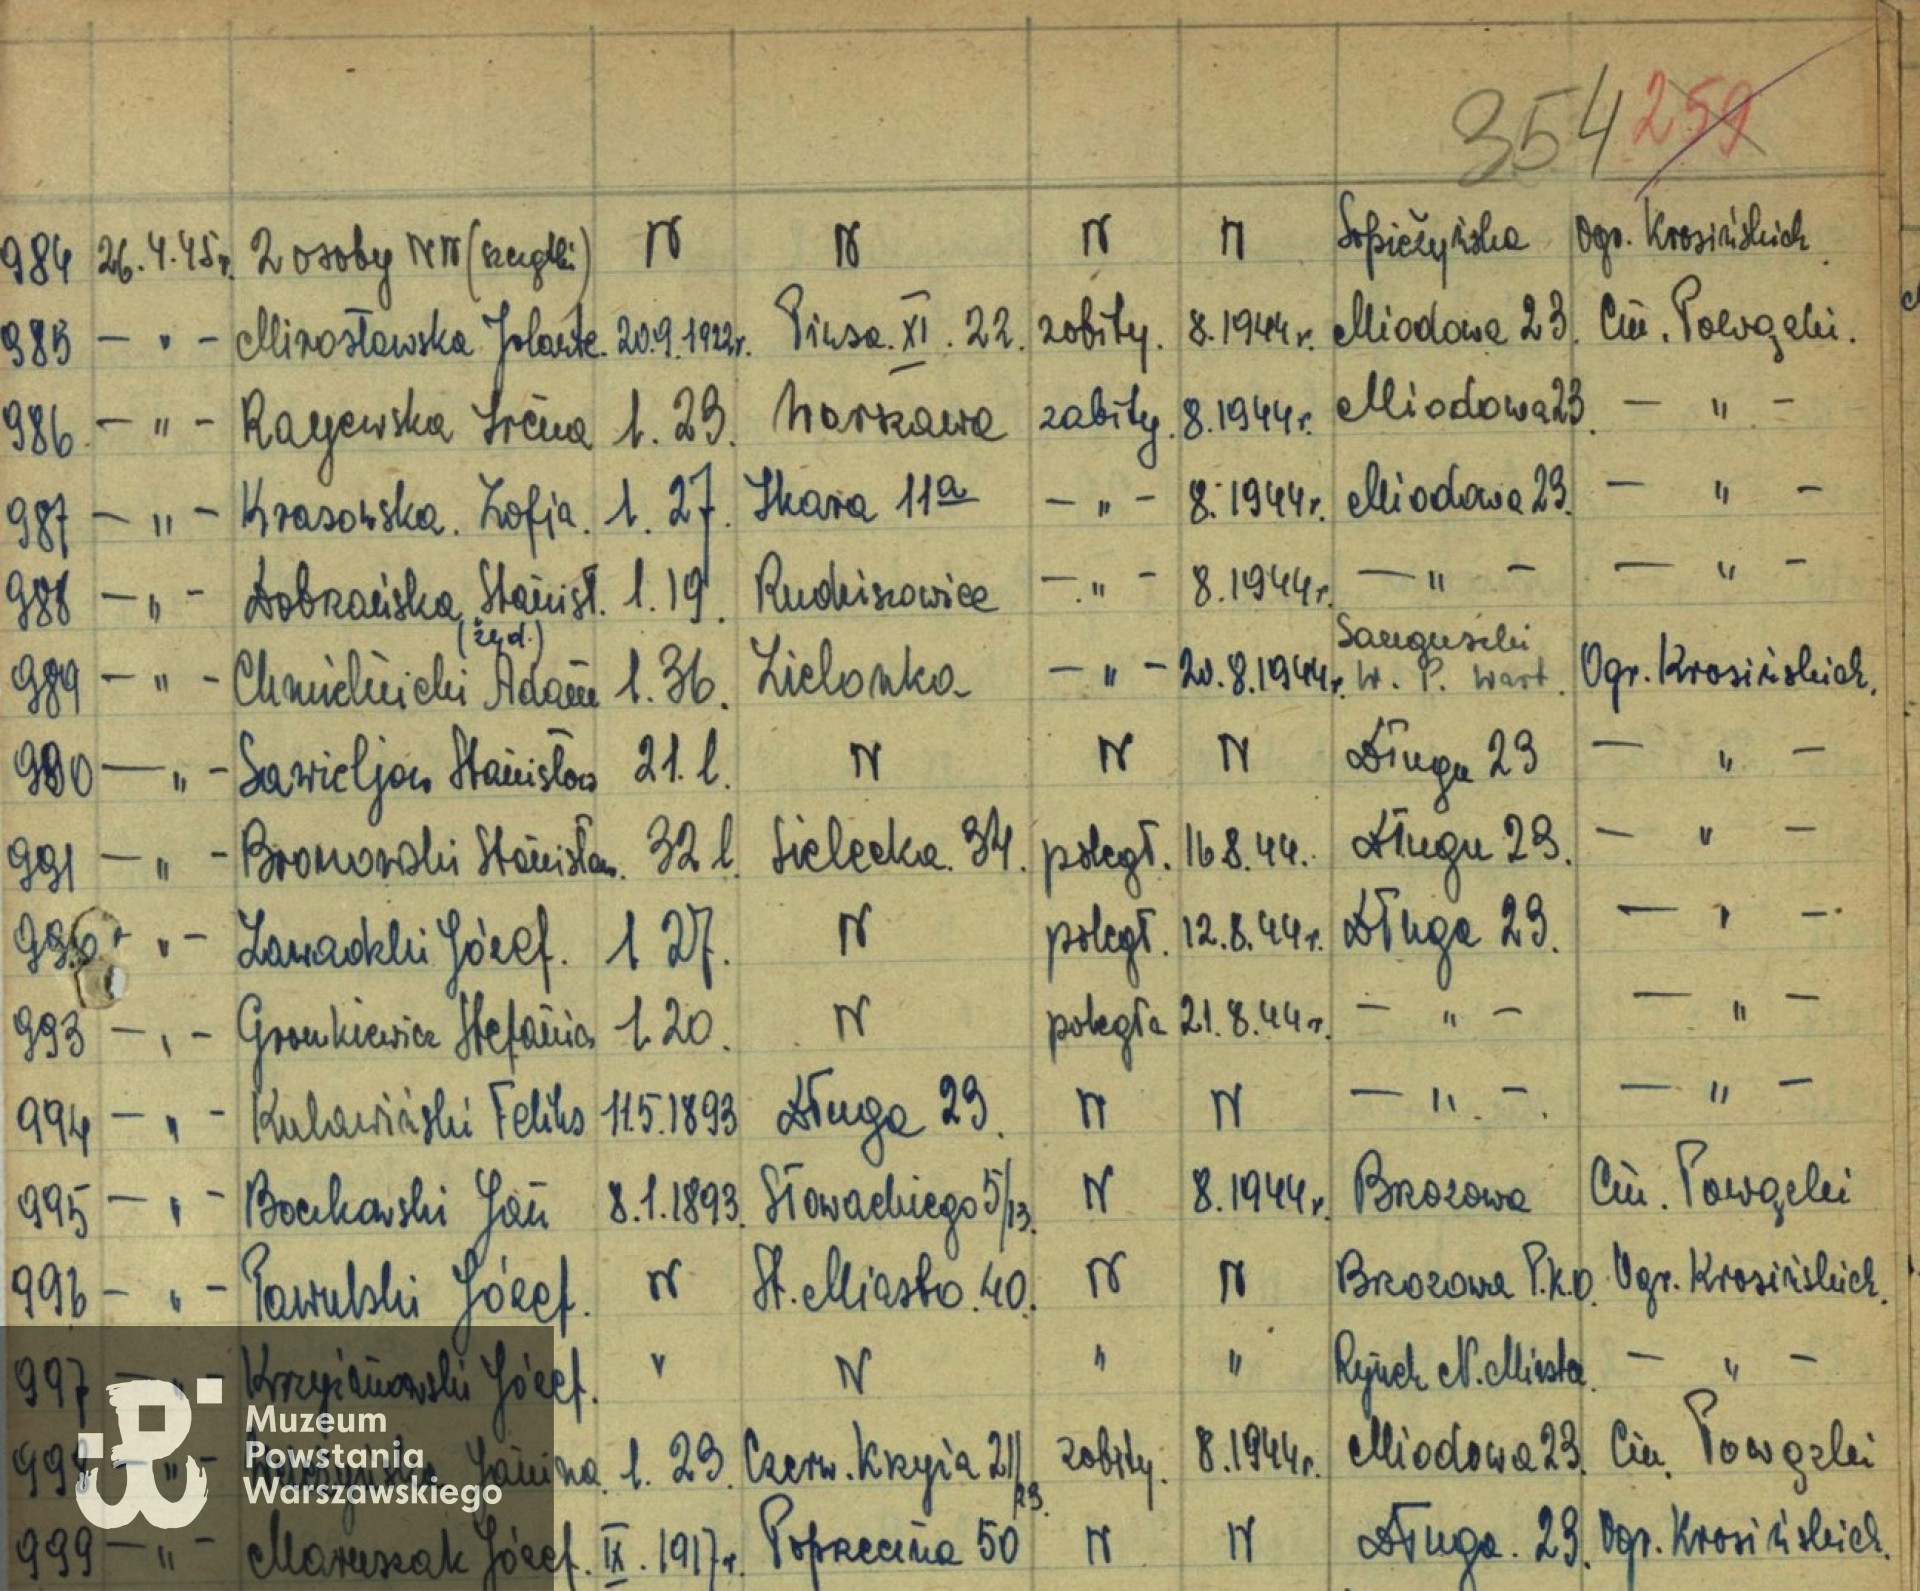 354 259
984 26.4.45r. 2 osoby NN (szczątki) N N N N Sapieżyńska Ogr. Krasińskich
985 — " — Mirosławska Jolanta. 20.9.1922r. Piusa. XI. 22. zabity. 8.1944r. Miodowa 23. Cm. Powązki.
986. — " — Rayewska Irena l. 23. Warszawa zabity. 8.1944r. Miodowa 23. — " —
987 — " — Krasowska. Zofja. l. 27. Ikara 11a — " — 8.1944r. Miodowa 23. — " —
988 — " — Dobrańska Stanisł. l. 19. — " — 8.1944r. — " — — " —
(żyd.) Sanguszki
989 — " — Chmielnicki Adam l. 36. Zielonka — " — 20.8.1944r. W. P. Wart. Ogr. Krasińskich.
990 — " — Stanisław 21. l. N N N Długa 23 — " —
991 — " — Bronowski Stanisław. 32 l. Sielecka. 34. poległ. 16.8.44. Długa 23. — " —
— " — Zawadzki Józef. l 27. N poległ. 12.8.44r. Długa 23. — " —
993 — " — Gronkiewicz Stefania l. 20. N poległa 21.8.44r. — " — — " —
994 — " — Kulawiński Feliks 11.5.1893 Długa 23. N N — " —. — " —
995 — " — Boczkowski Jan 8.1.1893. Słowackiego 5/13. N 8.1944r. Brzozowa Cm. Powązki
996 — " — Pawulski Józef. N St. Miasto. 40. N N Brzozowa P.K.O. Ogr. Krasińskich.
997 — " — Krzyżanowski Józef. " N " " Rynek N. Miasta. — " —
998 — " — Janina l. 23. Czerw. Krzyża 21/23. zabity. 8.1944r. Miodowa 23. Cm. Powązki
999 — " — Maruszak Józef. IX. 1917r. Poprzeczna 50 N N Długa. 23. Ogr. Krasińskich.
Muzeum
Powstania
Warszawskiego